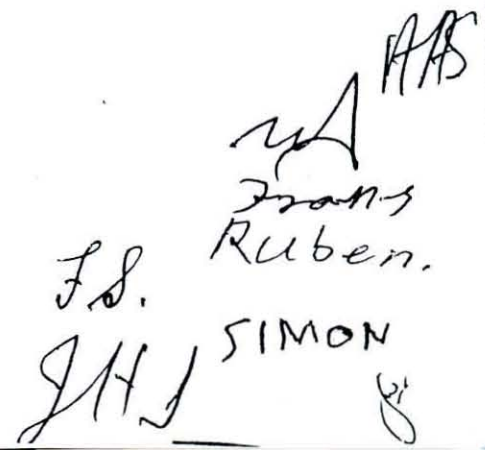 AAS
Frans
Ruben.
F.S.
SIMON
JHJ